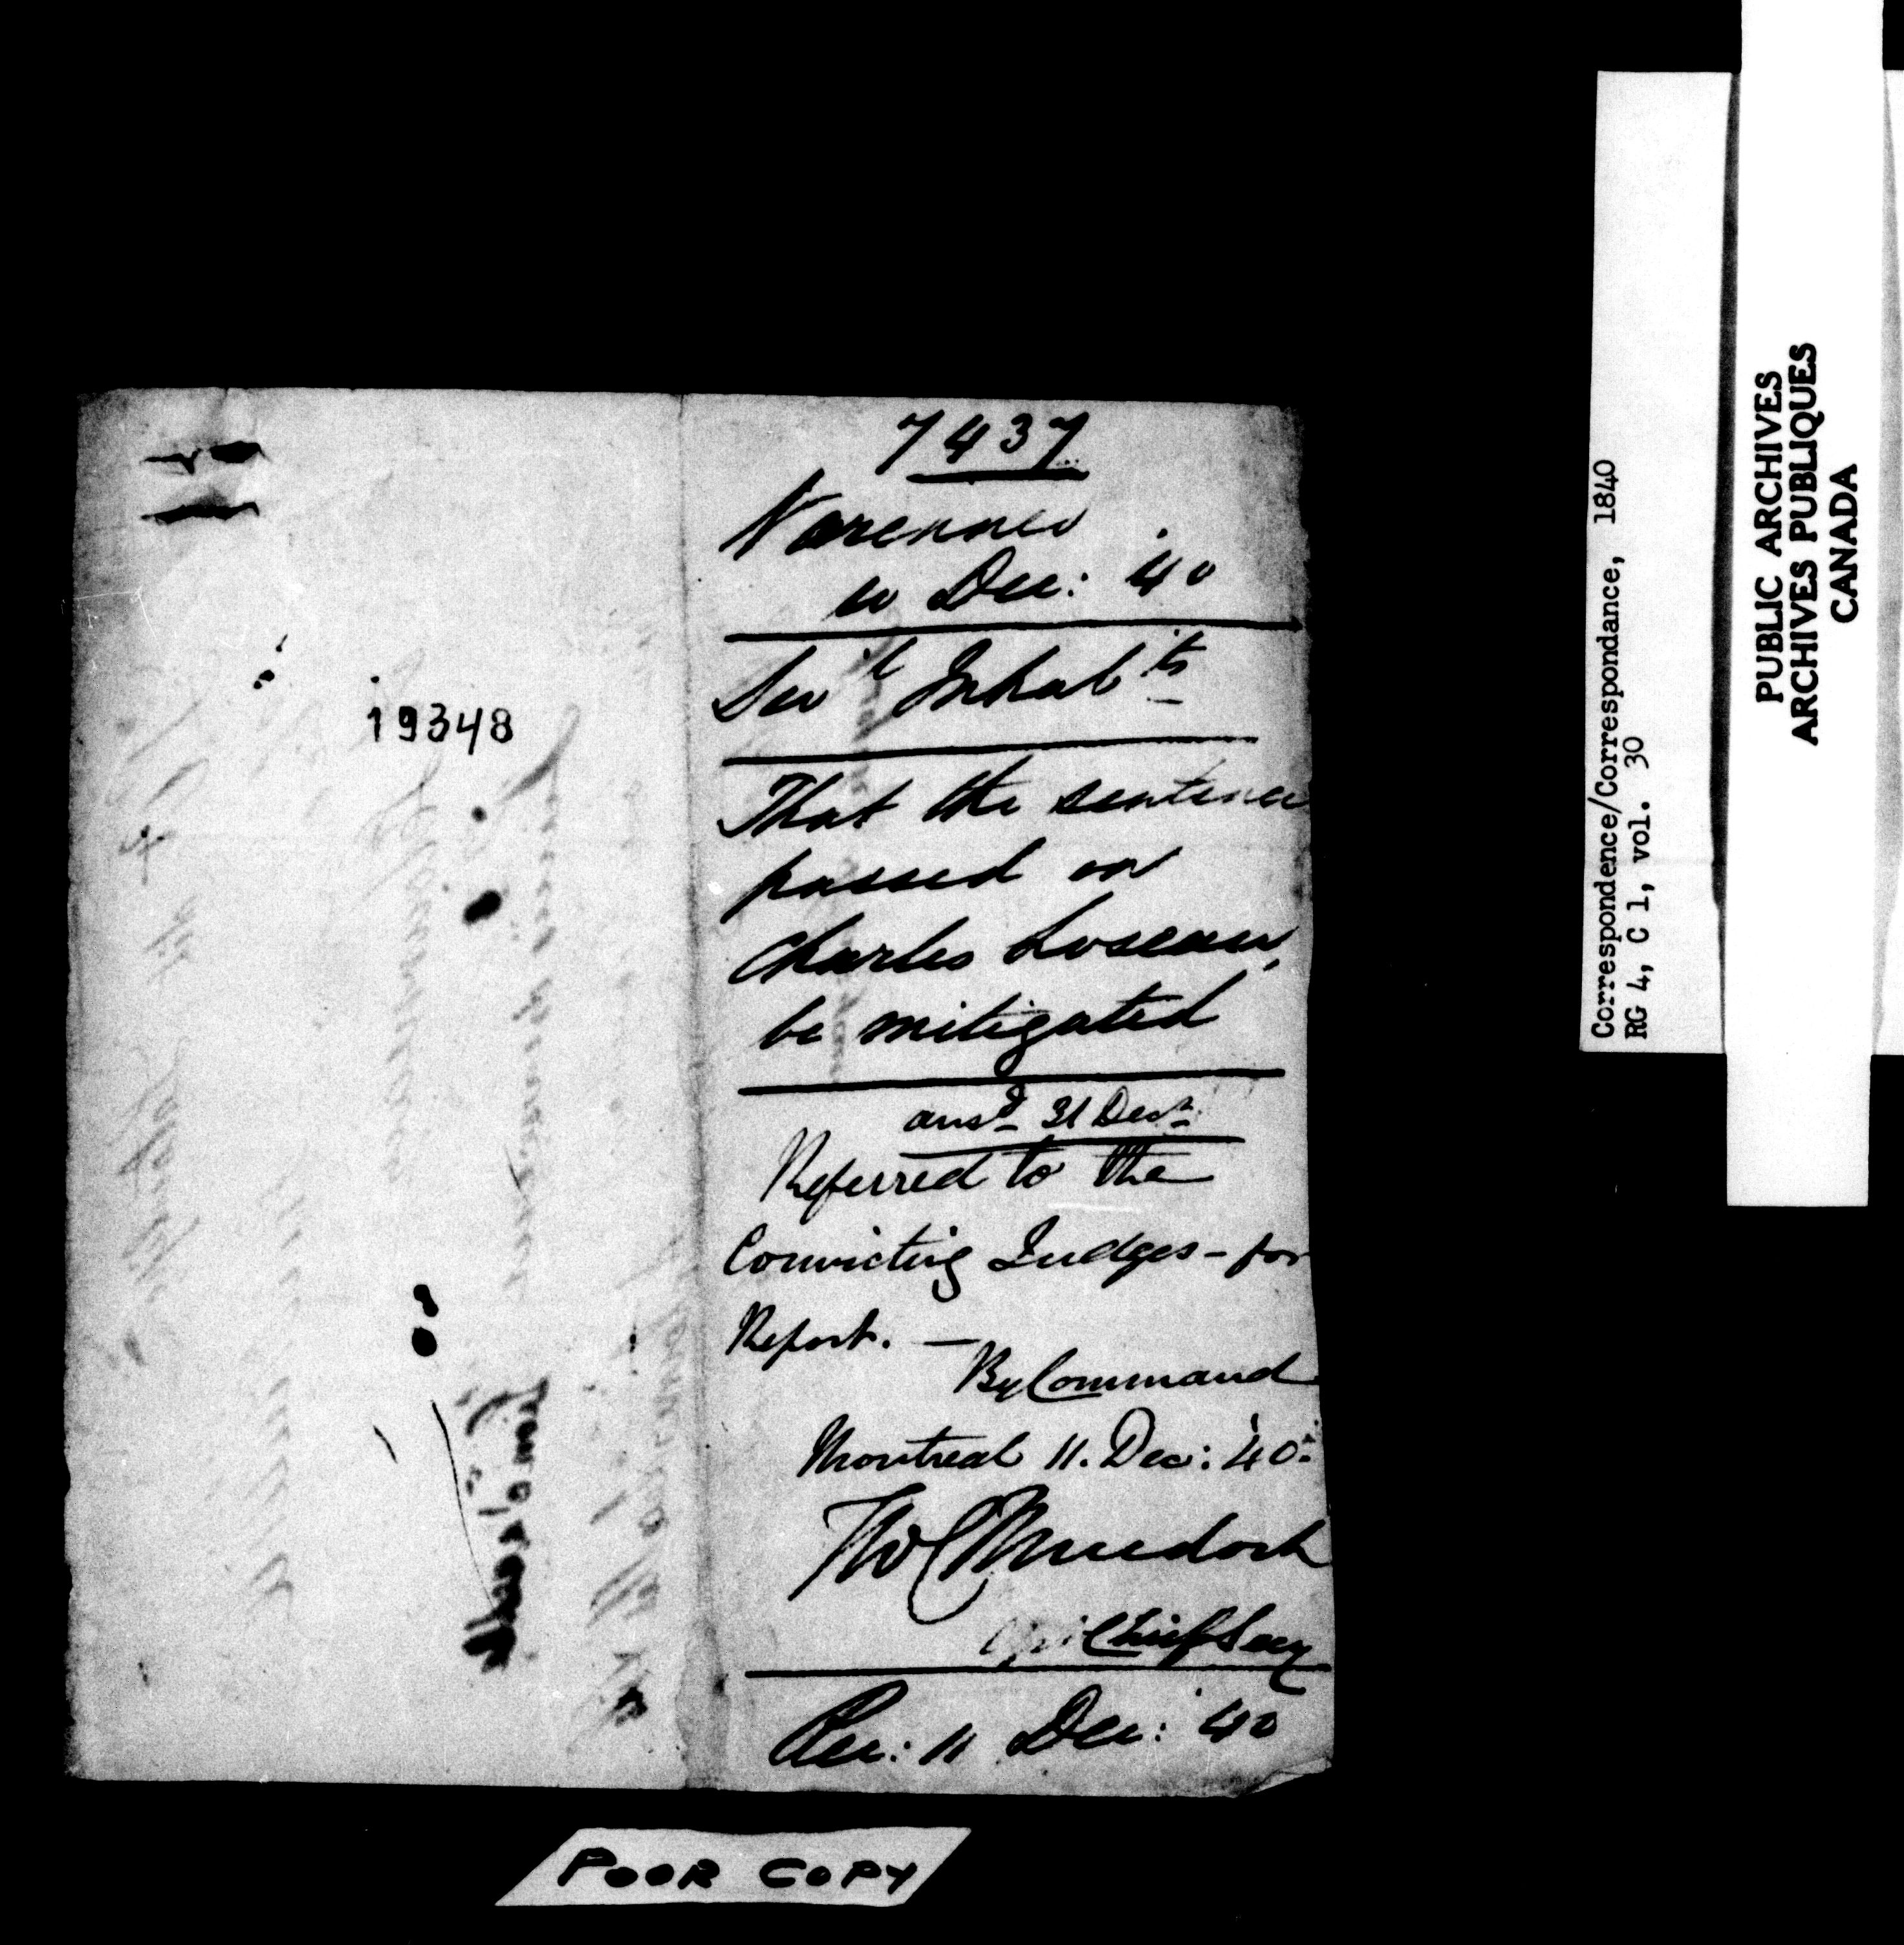 7437
Varennes
10 Dec: '40
Sevl Inhabits
That the sentence
passed on
Charles Loseau,
be mitigated
ansd 31 Decr
Referred to the
Convicting Judges - for
Report. —
By Command
Montreal 11. Dec: '40.
Th W C Murdoch
Chief Secy
Rec: 11 Dec: '40
19348
Correspondence/Correspondance, 1840
RG 4, C 1, vol. 30
PUBLIC ARCHIVES
ARCHIVES PUBLIQUES
CANADA
POOR COPY